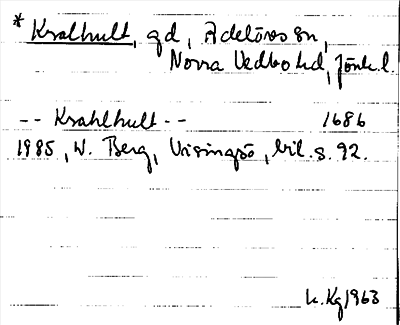 * Kralhult, gd, Adelövs sn,
Norra Vedbo hd, Jönk. l.
-- Krahlhult -- 1686
1985, W. Berg, Visingsö, bil. s. 92.
u. Kg 1963